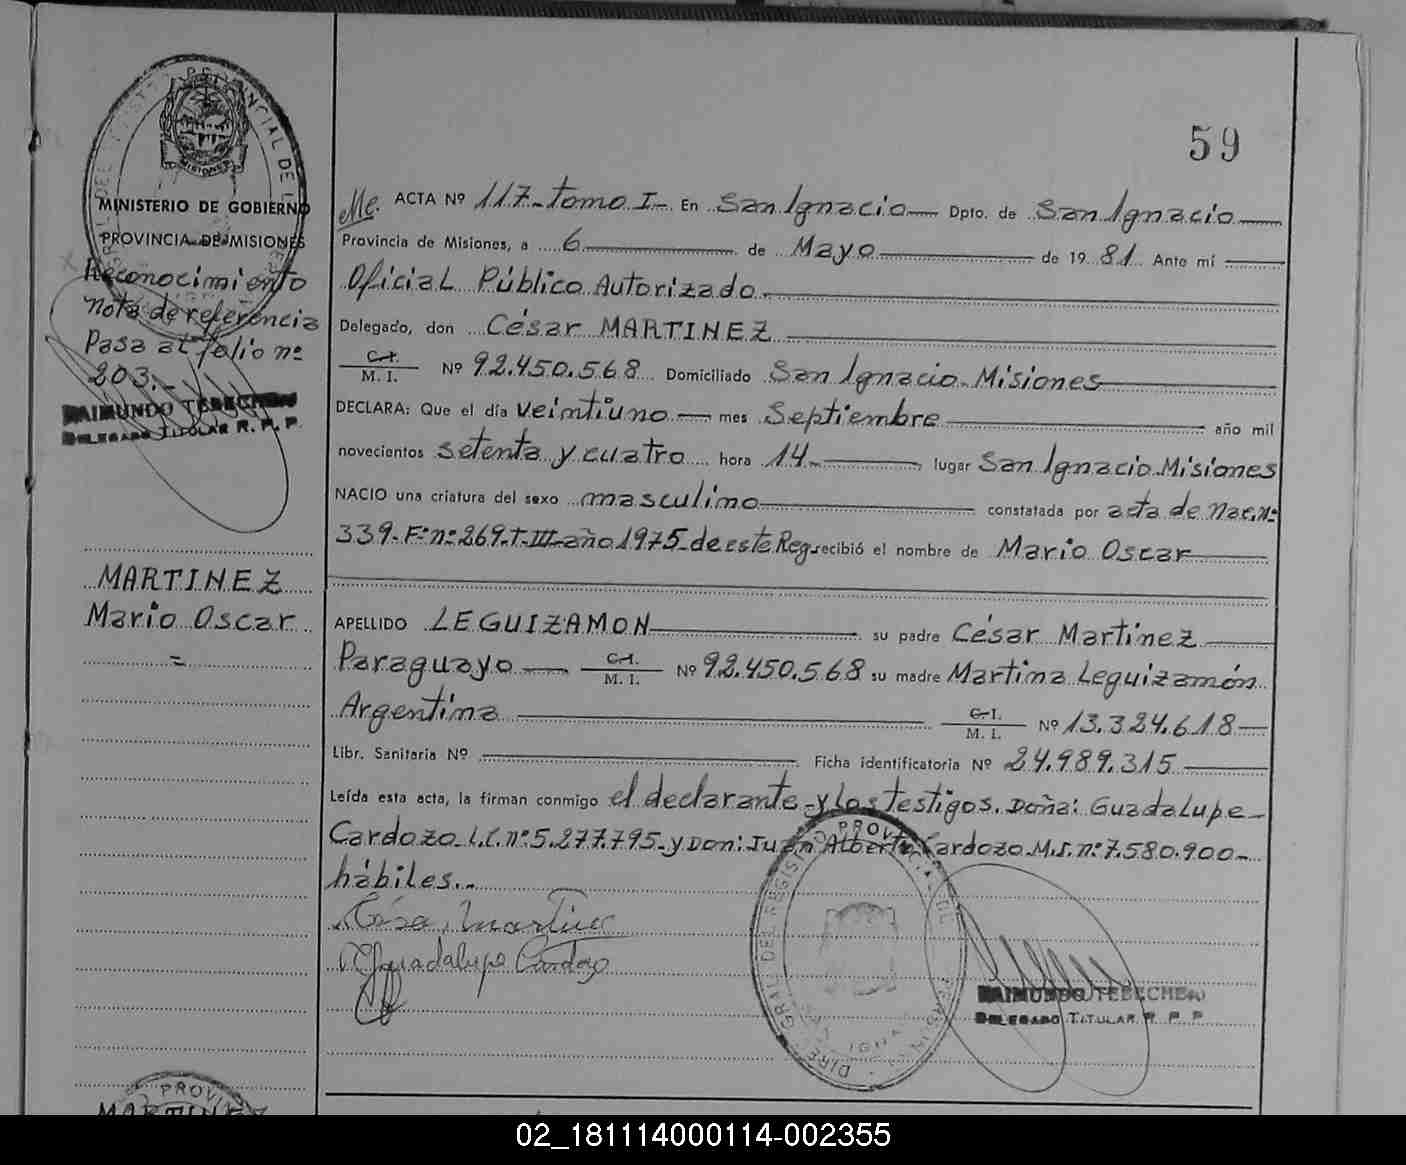 59
MINISTERIO DE GOBIERNO
PROVINCIA DE MISIONES
Reconocimiento
nota de referencia
Pasa al folio nº
203.-
RAIMUNDO TEBECHERI
DELEGADO TITULAR R. P. P.
MARTINEZ
Mario Oscar
=
ACTA Nº 117-tomo I- En San Ignacio Dpto. de San Ignacio
Provincia de Misiones, a 6 de Mayo de 1981 Ante mí
Oficial Público Autorizado
Delegado, don César MARTINEZ
C.I. / M. I. Nº 92.450.568 Domiciliado San Ignacio-Misiones
DECLARA: Que el día veintiuno mes Septiembre año mil
novecientos setenta y cuatro hora 14- lugar San Ignacio.Misiones
NACIO una criatura del sexo masculino constatada por acta de Nac.nº
339-Fº nº 269-T-III-año 1975-de este Reg. recibió el nombre de Mario Oscar
APELLIDO LEGUIZAMON su padre César Martinez
Paraguayo C.I. / M. I. Nº 92.450.568 su madre Martina Leguizamón
Argentina C.I. / M. I. Nº 13.324.618
Libr. Sanitaria Nº Ficha identificatoria Nº 24.989.315
Leída esta acta, la firman conmigo el declarante-y los testigos. Doña: Guadalupe-
Cardozo-L.C.nº 5.277.795-y Don: Juan Alberto Cardozo.M.I.nº 7.580.900-
hábiles.-
Guadalupe Cardozo
RAIMUNDO TEBECHERI
DELEGADO TITULAR R. P. P.
PROVI
MARTIN
02_181114000114-002355